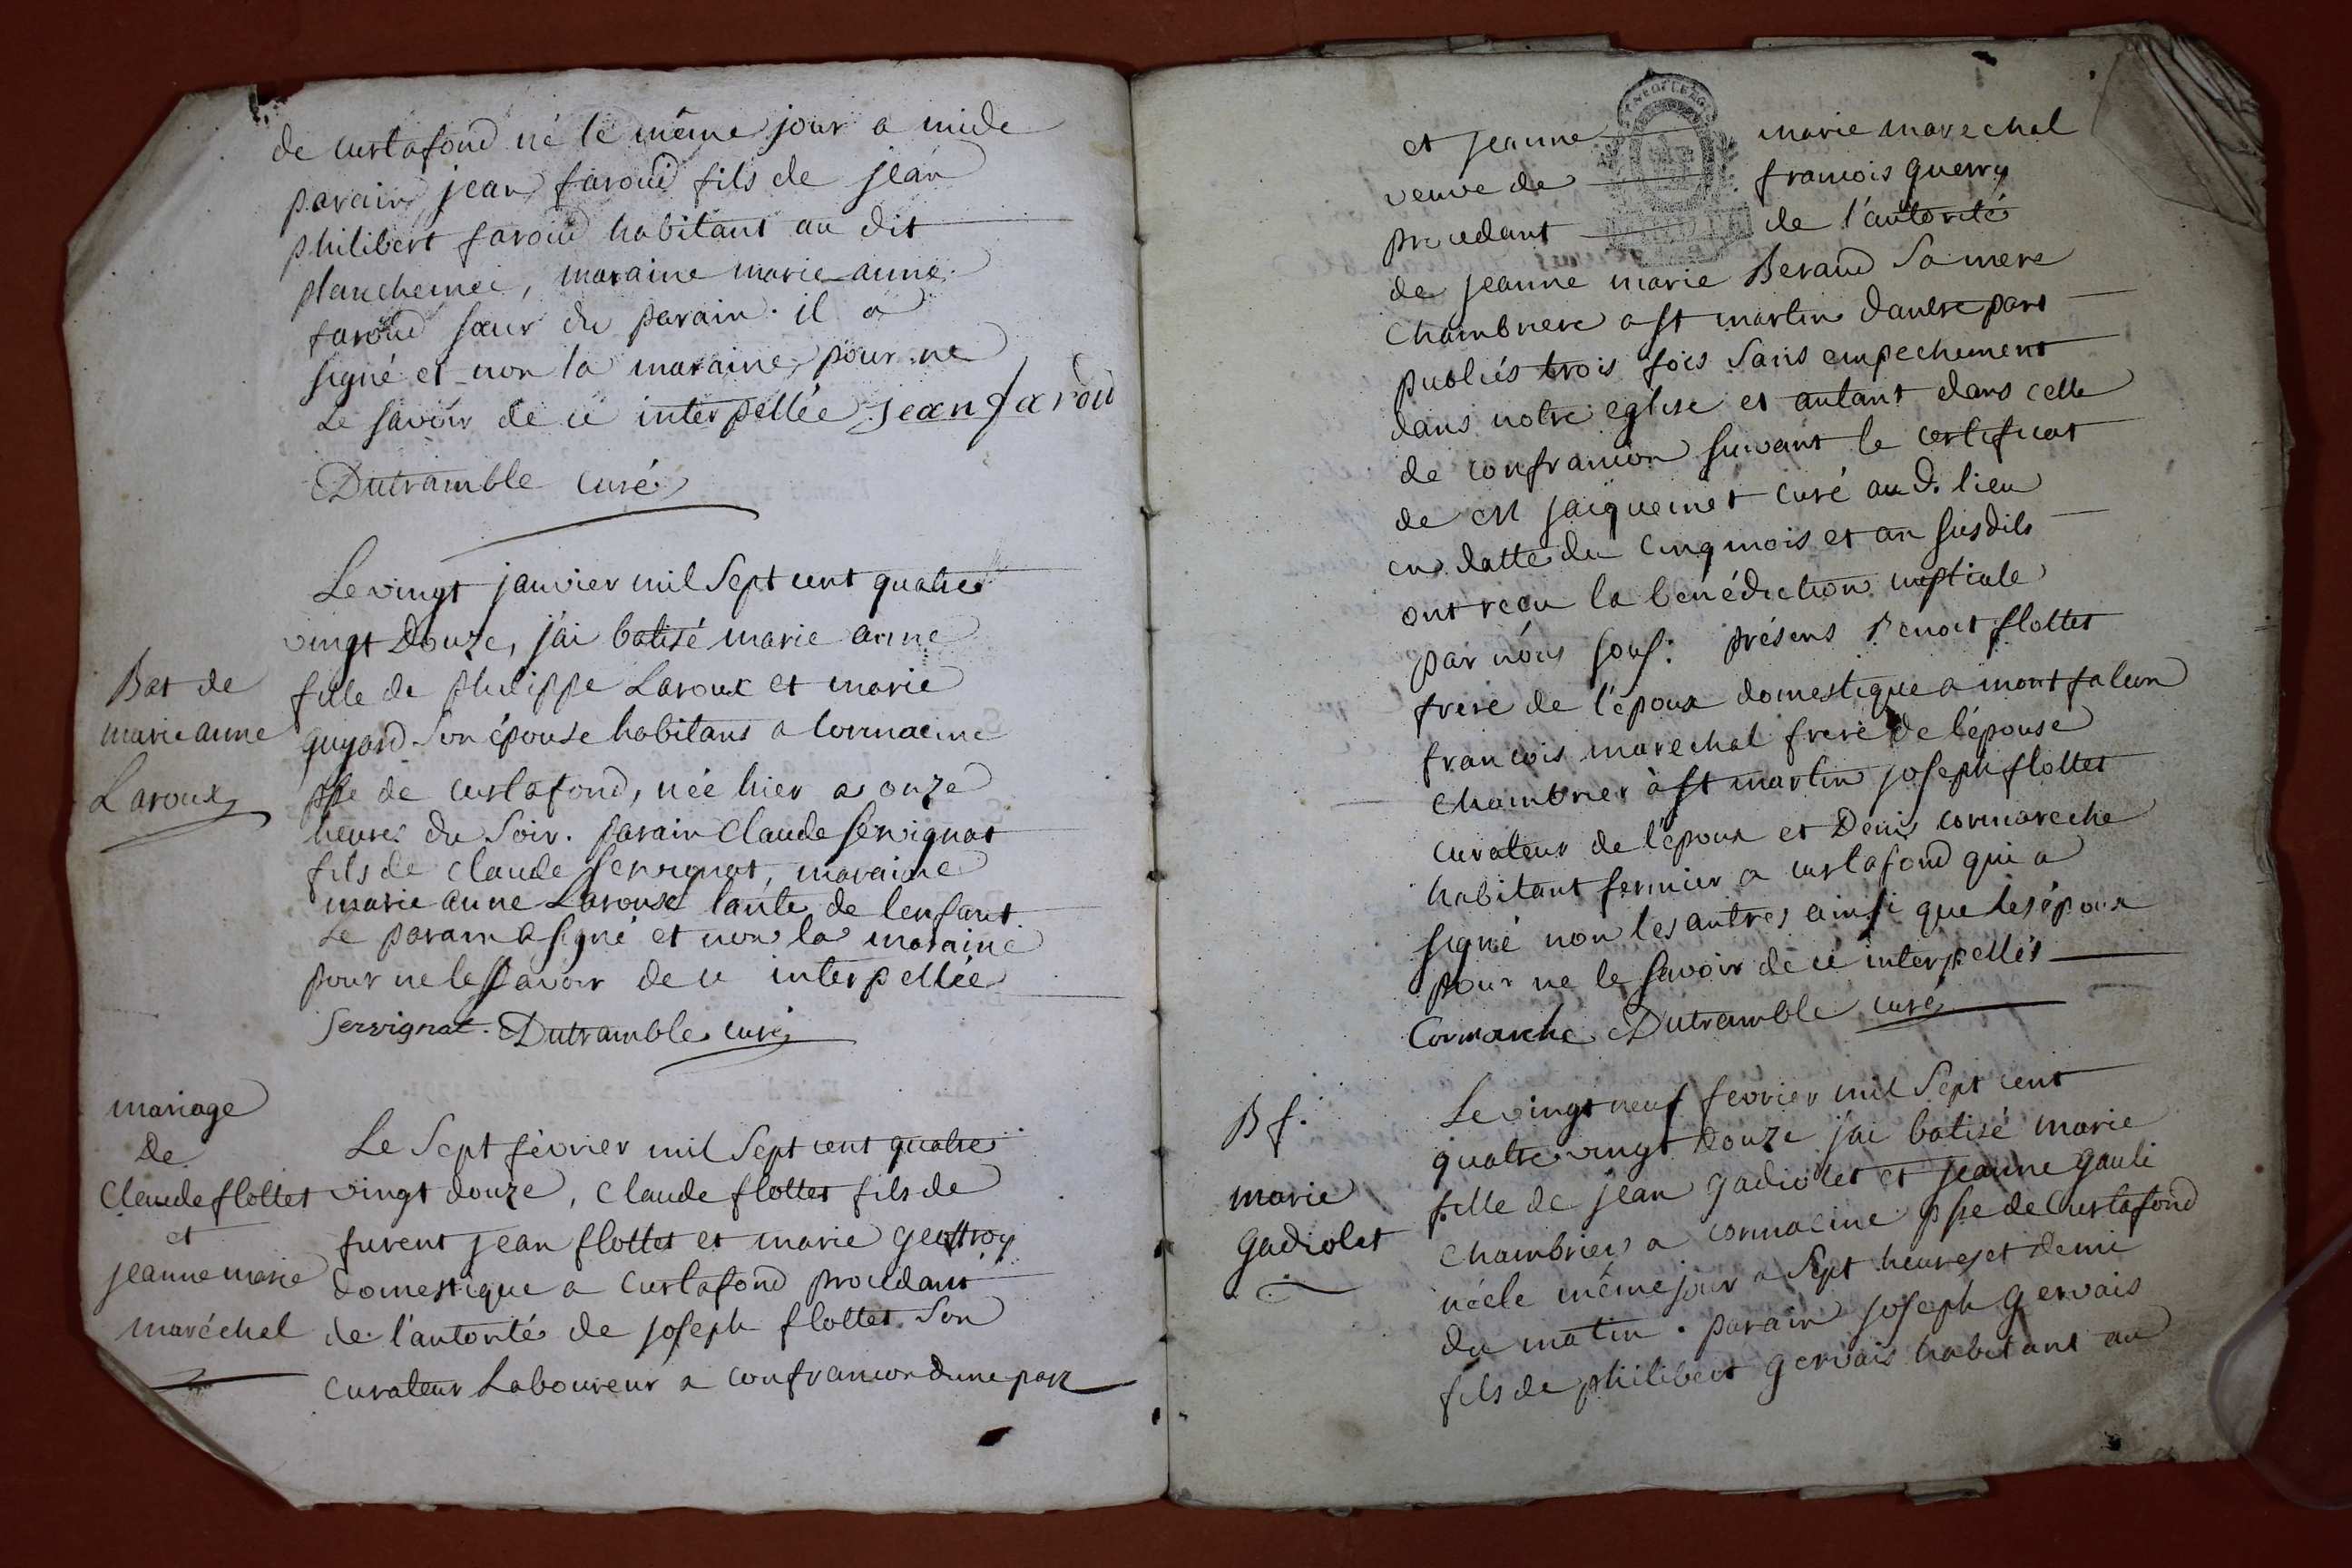 de curtafond né le même jour a midi
parain jean faroud fils de jean
philibert faroud habitant au dit
planchemei, maraine marie anne
faroud sœur du parain. il a
signé et non la maraine pour ne
le savoir de ce interpellée jean faroud
Dutramble curé
Le vingt janvier mil sept cent quatre
vingt douze, j'ai batisé marie anne
fille de philippe Laroux et marie
guyard son épouse habitans a cormacine
psse de curtafond, née hier a onze
heures du soir. parain Claude servignat
fils de claude servignat, maraine
marie anne Larouse tante de lenfant
le parain a signé et non la maraine
pour ne le savoir de ce interpellée
servignat. Dutramble curé
Bat de
marie anne
Laroux
mariage
De
Claude flottet
et
jeanne marie
maréchal
Le sept février mil sept cent quatre
vingt douze, Claude flottet fils de
furent jean flottet et marie geuffroy
domestique a Curtafond procedant
de l'autorité de joseph flottet son
curateur Laboureur a confrancon dune part
et jeanne marie marechal
veuve de francois guerry
procedant de l'autorité
de jeanne marie Beraud sa mere
chambriere a st martin dautre part
publiés trois fois sans empechement
dans notre eglise et autant dans celle
de confrancon suivant le certificat
de M jacquemet curé au d. lieu
en datte du cinq mois et an susdits
ont reçu la bénédiction nuptiale
par nous sous: présens Benoit flottet
frere de l'époux domestique a montfalcon
francois marechal frere de l'épouse
chambrier à st martin joseph flottet
curateur de l'époux et Denis cormareche
habitant fermier a curtafond qui a
signé non les autres ainsi que les époux
pour ne le savoir de ce interpellés
Cormarche Dutramble curé
B f.
marie
Gadiolet
Le vingt neuf fevrier mil sept cent
quatre vingt douze j'ai batisé marie
fille de jean gadiolet et jeanne gauli
chambriers a cormacine psse de Curtafond
née le même jour a sept heures et demi
du matin. parain joseph gervais
fils de philibert gervais habitant au